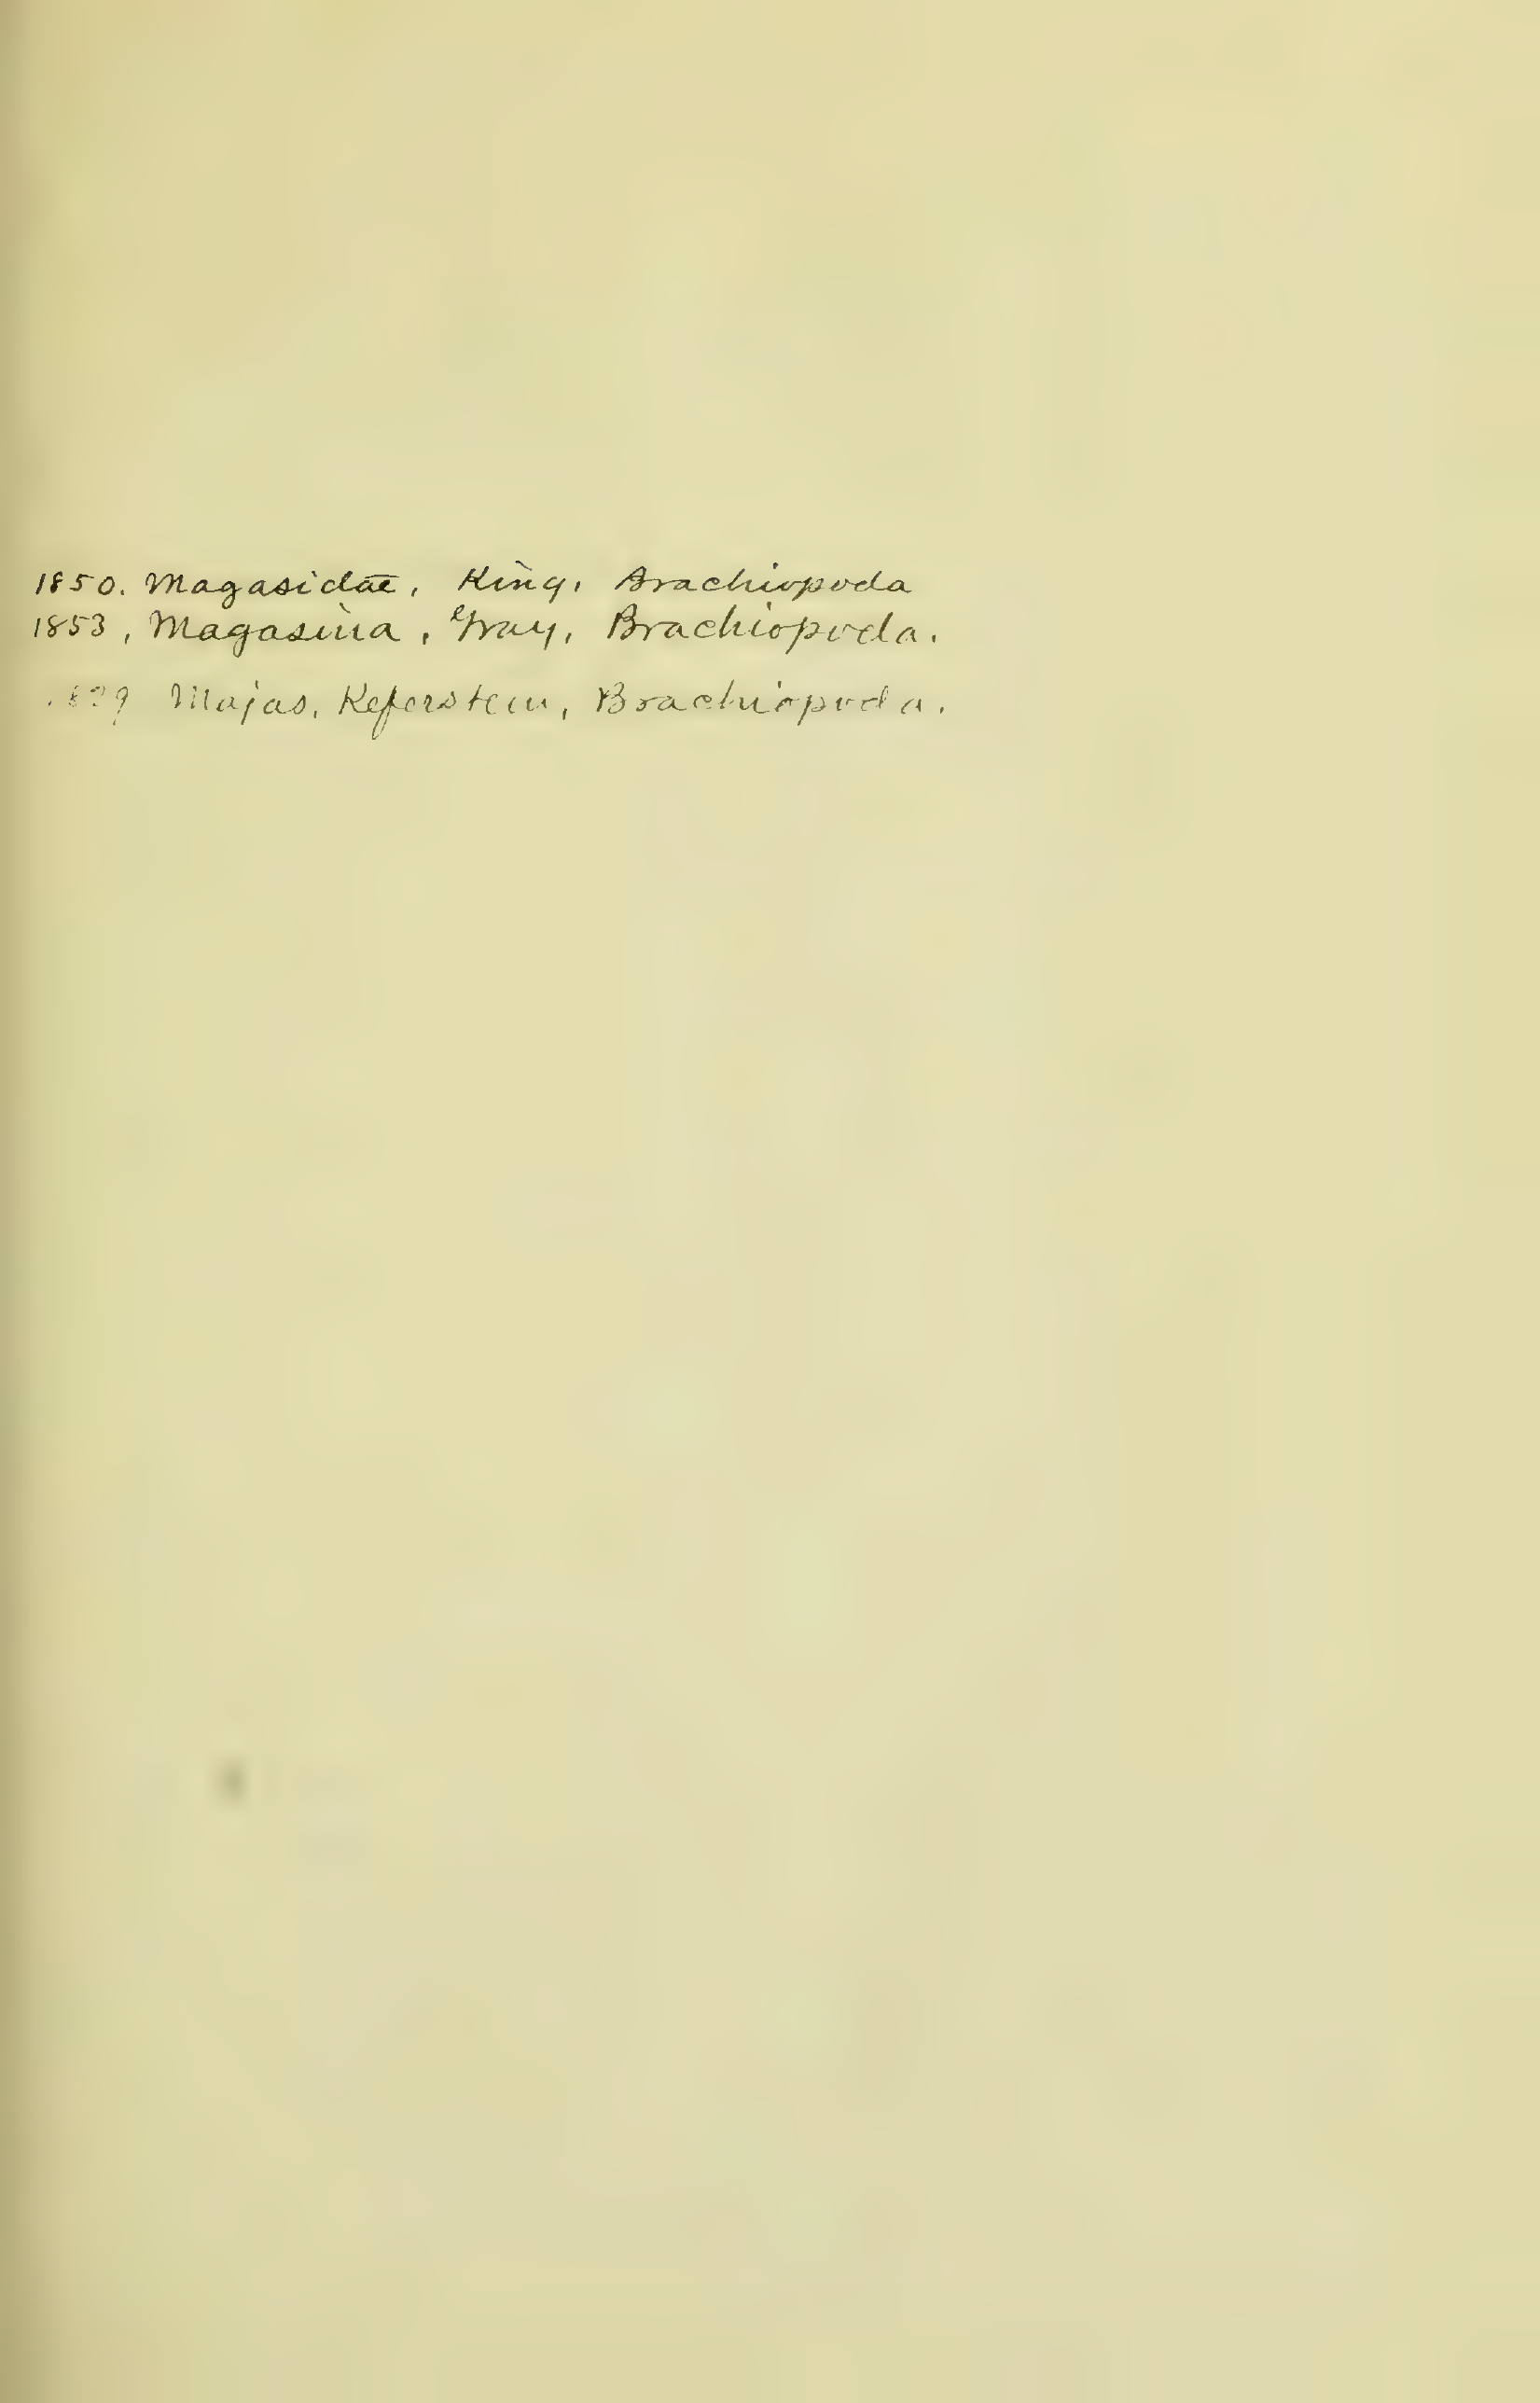 1850. Magasidae, King, Brachiopoda
1853, Magasina, Gray, Brachiopoda.
Majas, Keferstein, Brachiopoda.